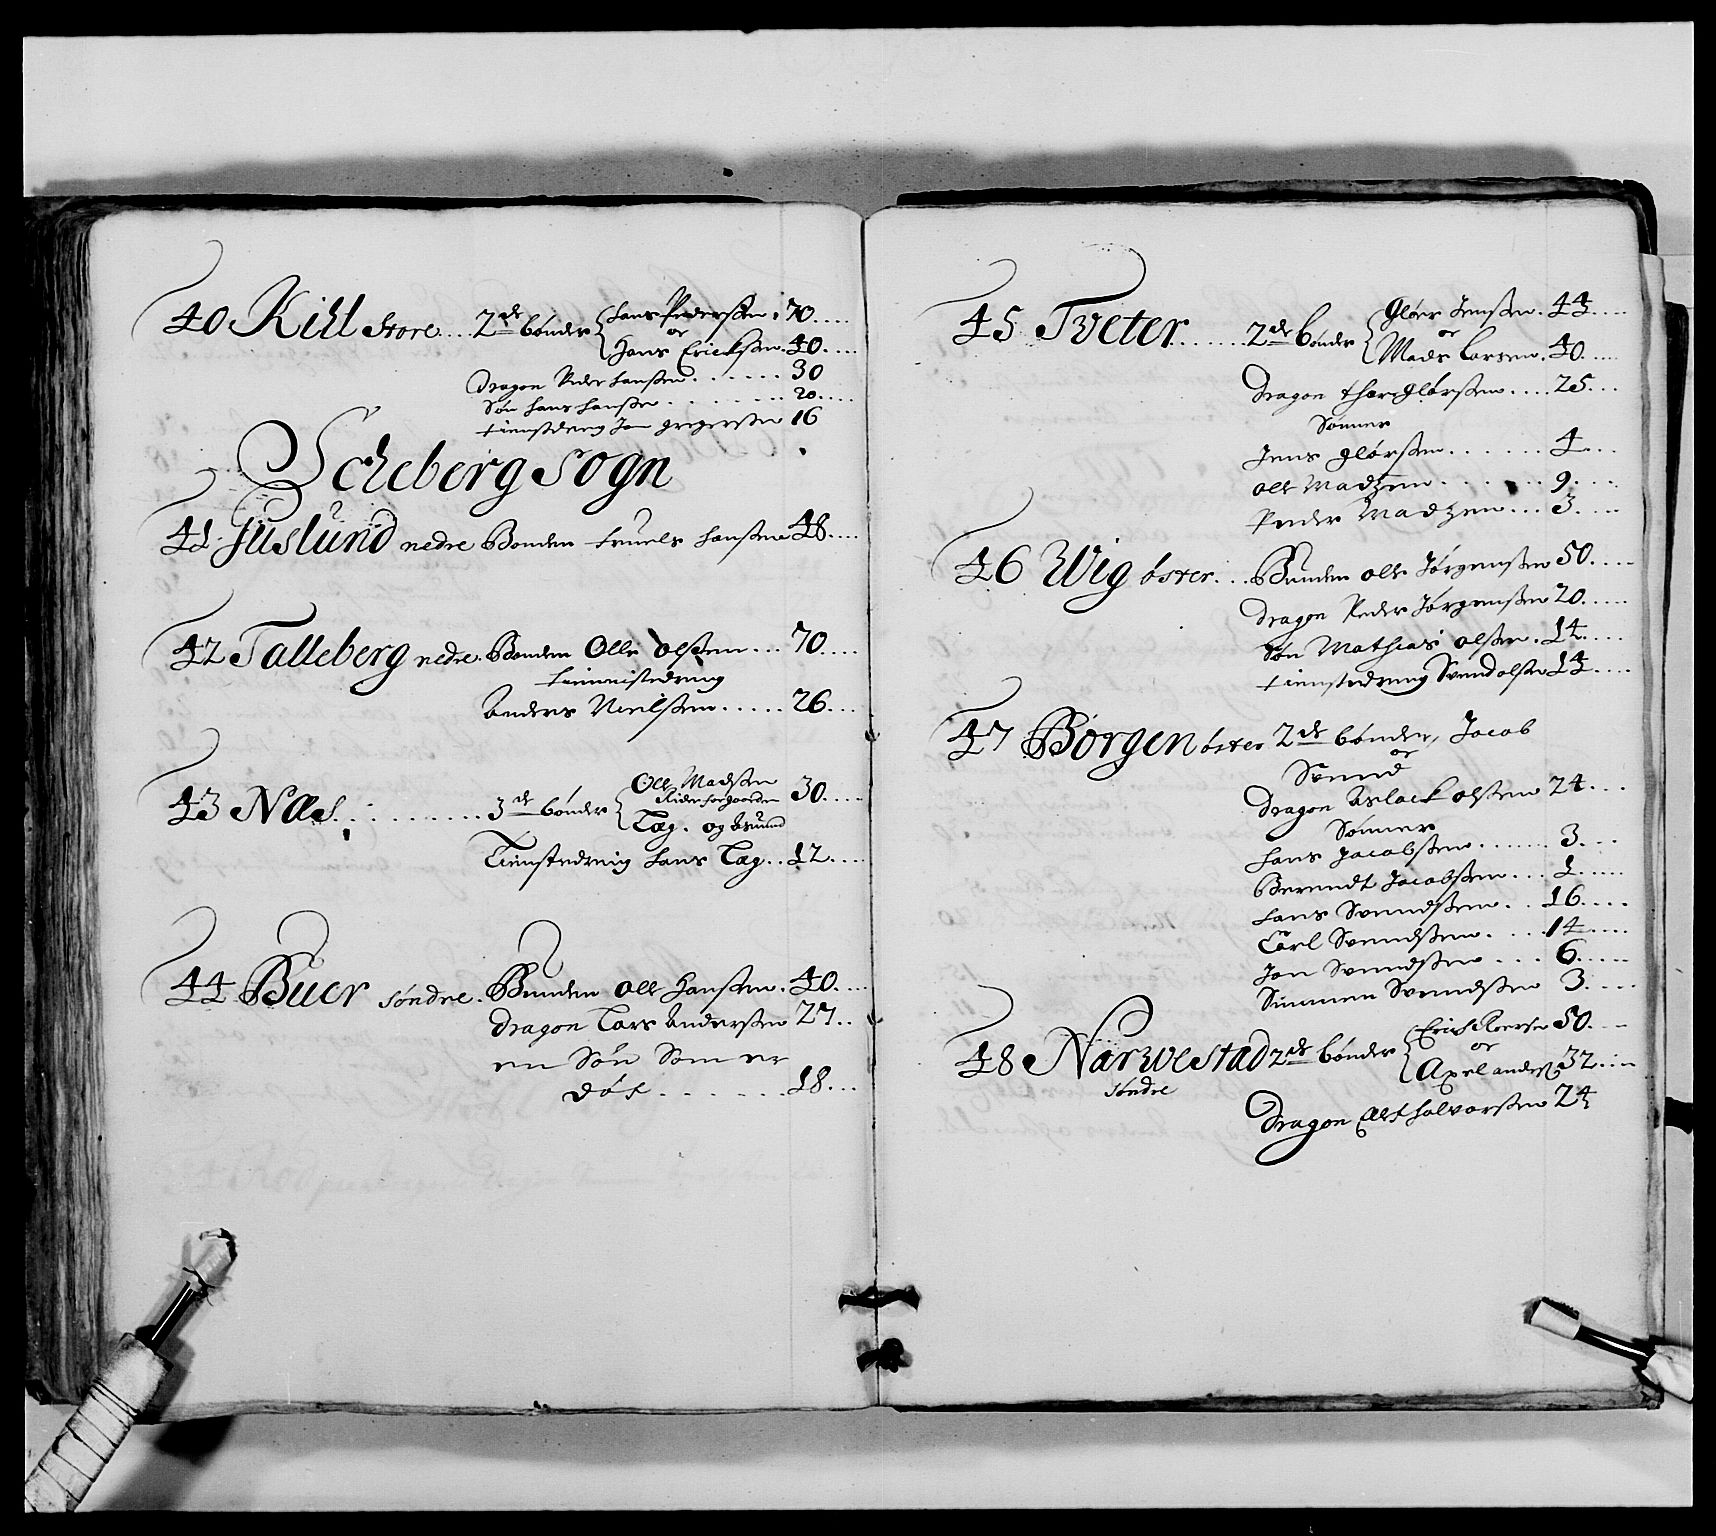 40 Kihl Store .... 2de bønder { Hans Pedersen : 70 ....
or
Hans Ericksen . 40 ....
Dragon Peder Hansen ....... 30
Søn Hans Hansen ........ 20 ....
tienstdreng Jon gregersen 16
Scheberg Sogn
41 Juslund nedre Bonden truels Hansen 48 ....
42 Talleberg nedre . Bonden Olle olsen ... 70 ....
tiennistedreng
Anders Nielsen ..... 26 ...
43 Næs ........... 3de bønder { Olle Madsen
Rider forgaarden 30 ....
Lag . og Asuund
Tienstedreng Hans Lag .. 12 ....
44 Buer søndre . Bunden Olle Hansen . 40 ....
Dragon Lars Andersen 27 ..
en Søn Som er
døf ....... 18 ...
45 Tveter ....... 2de bønder { Gløer Jensen . 44 ....
or
Mads Larsen . 40 ....
Dragon thor gløersen .... 25 ...
Sønner
Jens gløersen ...... 4 ...
Olle Madzen ....... 9 ....
Peder Madzen ... 3 ....
46 Wig öster .... Bunden olle Jørgensen 50 .....
Dragon Peder Jørgensen 20 .....
Søn Mathias olsen . 14 ....
tienstedreng Svend olsen 14 ....
47 Borgen öster 2de bønder, Jacob
or
Svend
Dragon Aslack olsen 24 ...
Sønner
Hans Jacobsen ....... 3 ...
Berendt Jacobsen ... 1 .....
Hans Svendsen .. 16 ....
Carl Svendsen . ... 14 ....
Jon Svendsen ... 6 .....
Simmen Svendsen 3 ....
48 Narwestad 2de bønder { Erich Roersen 50 ...
or
søndre
Axel anders 32 ....
Dragon Elef Halvorsen 24